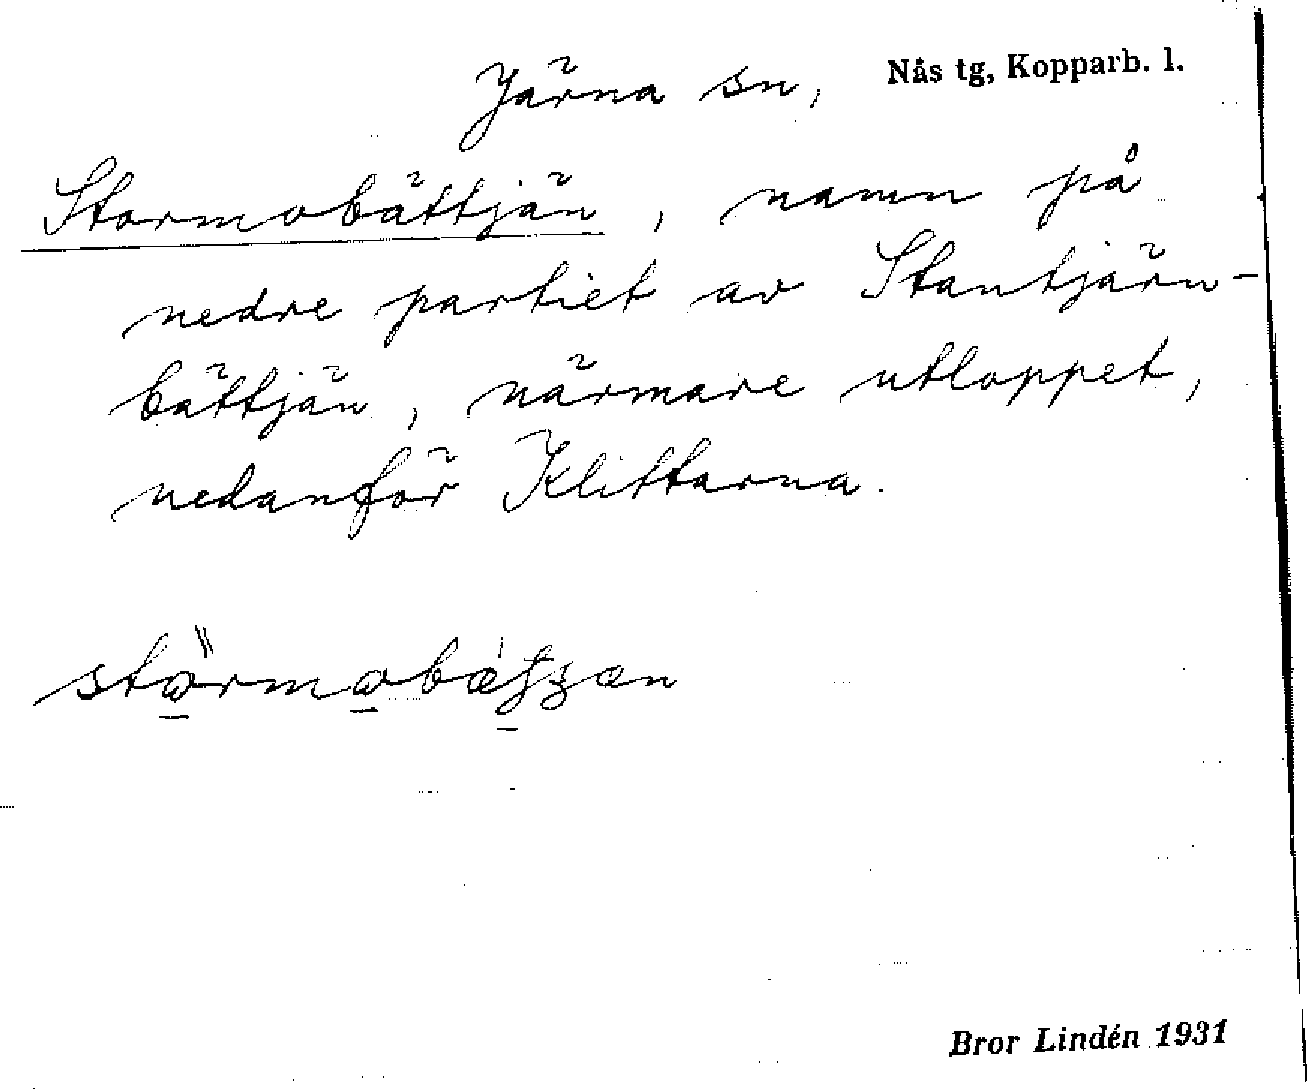 Järna sn, Nås tg, Kopparb. l.
Stormobättjän, namn på
nedre partiet av Stantjärn-
bättjän, närmare utloppet,
nedanför Klittarna.
Bror Lindén 1931